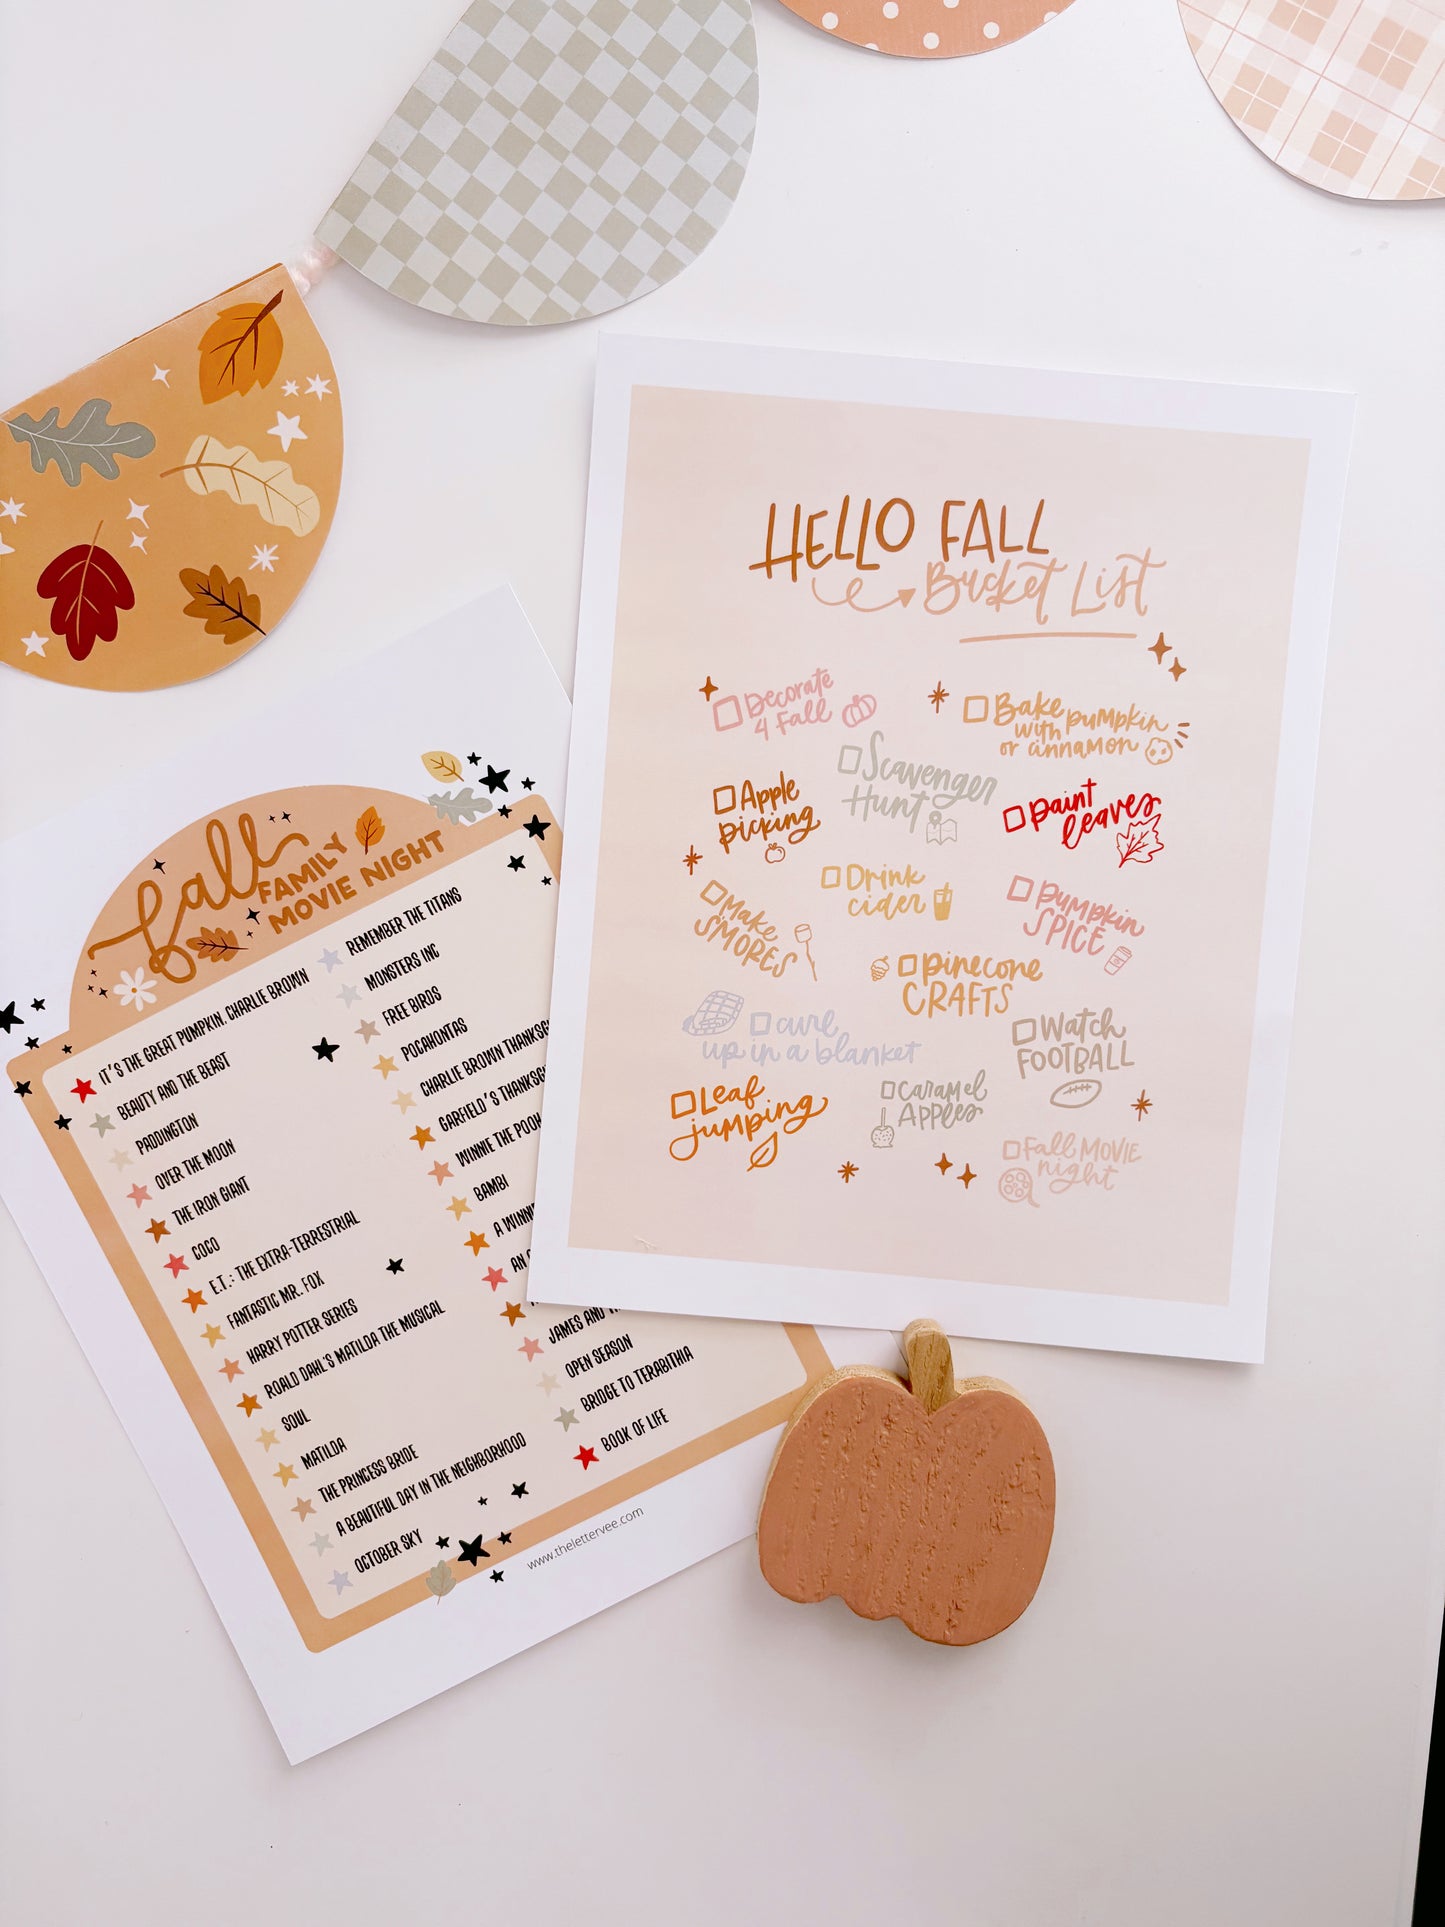 HELLO FALL
Bucket List
Decorate
4 Fall
Bake
with pumpkin
or cinnamon
Scavenger
Hunt
Apple
picking
paint
leaves
Drink
cider
Make
S'MORES
pumpkin
SPICE
pinecone
CRAFTS
curl
up in a blanket
Watch
FOOTBALL
Leaf
jumping
CARAMEL
APPLES
Fall MOVIE
night
fall
FAMILY
MOVIE NIGHT
IT'S THE GREAT PUMPKIN, CHARLIE BROWN
BEAUTY AND THE BEAST
PADDINGTON
OVER THE MOON
THE IRON GIANT
COCO
E.T.: THE EXTRA-TERRESTRIAL
FANTASTIC MR. FOX
HARRY POTTER SERIES
ROALD DAHL'S MATILDA THE MUSICAL
SOUL
MATILDA
THE PRINCESS BRIDE
A BEAUTIFUL DAY IN THE NEIGHBORHOOD
OCTOBER SKY
REMEMBER THE TITANS
MONSTERS INC
FREE BIRDS
POCAHONTAS
CHARLIE BROWN
GARFIELD'S
WINNIE THE POOH
BAMBI
A
JAMES AND
OPEN SEASON
BRIDGE TO TERABITHIA
BOOK OF LIFE
www.thelettervee.com